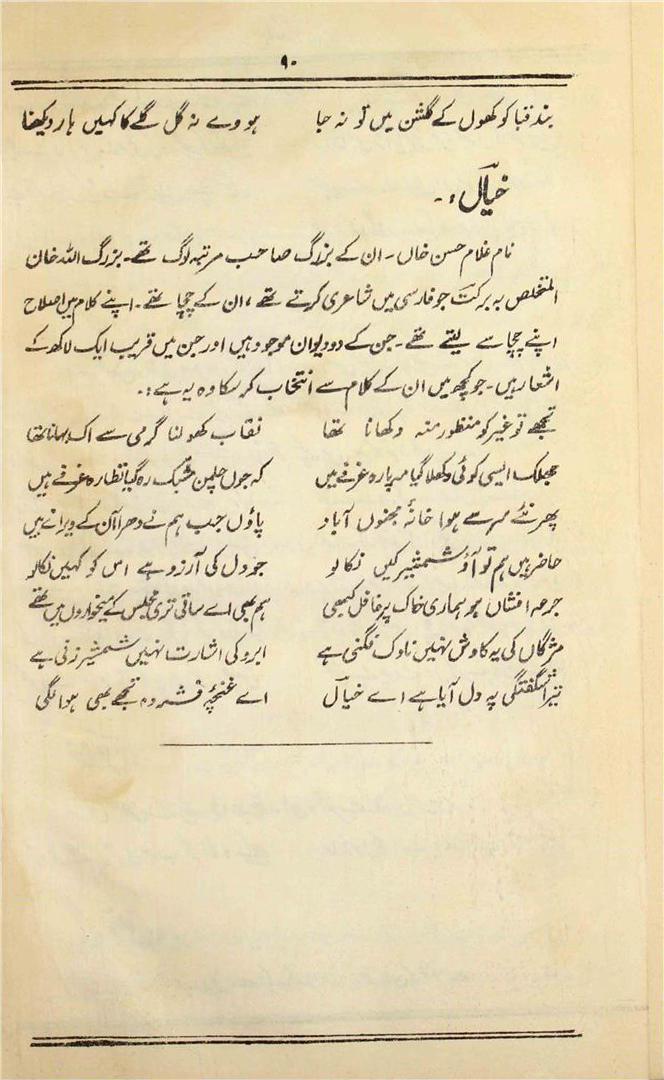 ۹۰
بند قبا کو کھول کے گلشن میں تو نہ جا ہووے نہ گل گلے کا کہیں ہار دیکھنا
خیالؔ :-
نام غلام حسن خاں۔ ان کے بزرگ صاحب مرتبہ لوگ تھے۔ بزرگ اللہ خان
المتخلص بہ برکت جو فارسی میں شاعری کرتے تھے، ان کے چچا تھے۔ اپنے کلام میں اصلاح
اپنے چچا سے لیتے تھے۔ جن کے دو دیوان موجود ہیں اور جن میں قریب ایک لاکھ کے
اشعار ہیں۔ جو کچھ میں ان کے کلام سے انتخاب کر سکا وہ یہ ہے :-
تجھے تو غیر کو منظور منہ دکھانا تھا نقاب کھولنا گرمی سے اک بہانا تھا
جھلک ایسی کوئی دکھلا گیا مہ پارہ غرفے میں کہ جوں چلمن مشبک رہ گیا نظارہ غرفے میں
پھر نئے سر سے ہوا خانۂ مجنوں آباد پاؤں جب ہم نے دھرا آن کے ویرانے میں
حاضر ہیں ہم تو آؤ شمشیر کیں نکالو جو دل کی آرزو ہے اس کو کہیں نکالو
جرعہ افشاں ہو ہماری خاک پر غافل کبھی ہم بھی اے ساقی تری مجلس کے میخواروں میں تھے
مژگاں کی یہ کاوش نہیں ناوک فگنی ہے ابرو کی اشارت نہیں شمشیر زنی ہے
تیرا شگفتگی پہ دل آیا ہے اے خیالؔ اے غنچۂ فشردہ تجھے بھی ہوا لگی